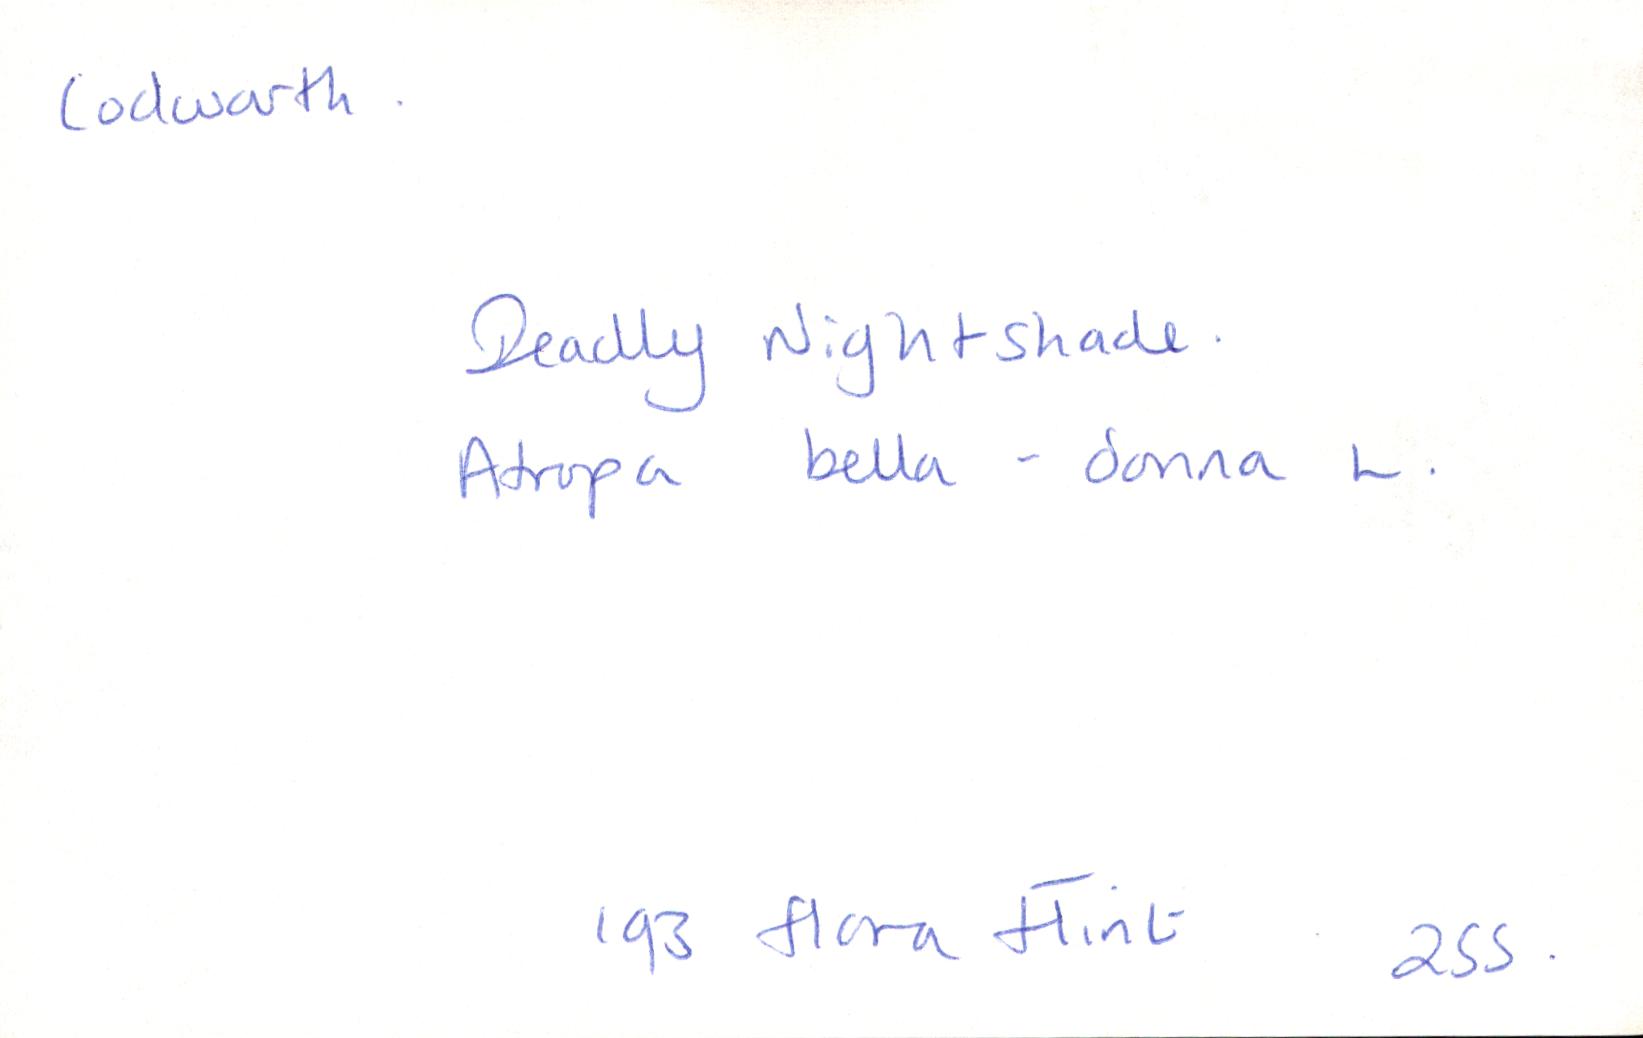 Codwarth.
Deadly Nightshade.
Atropa bella - donna L.
193 flora Flint 255.